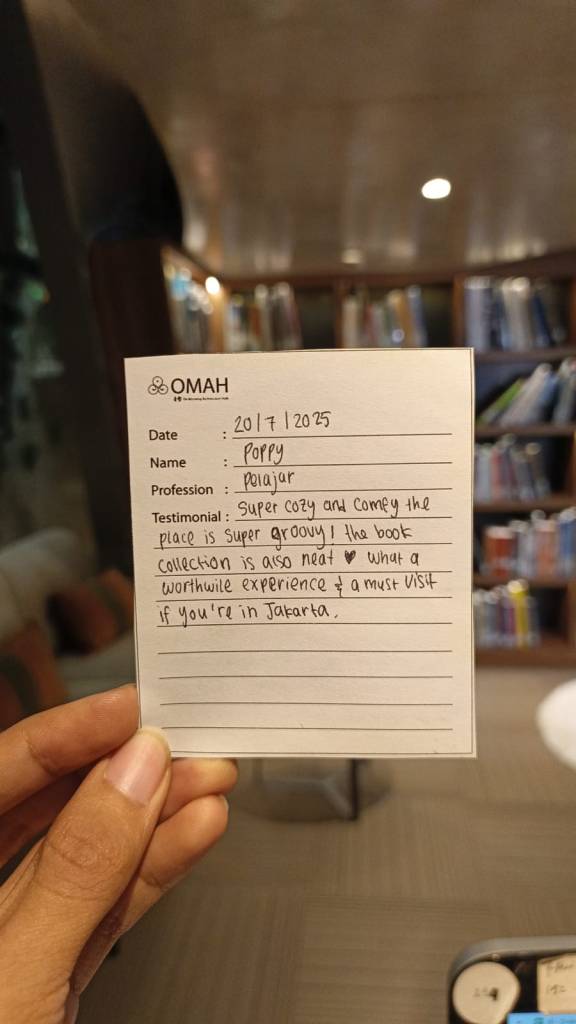 OMAH
Date : 20/7/2025
Name : Poppy
Profession : Pelajar
Testimonial : Super cozy and comfy the
place is super groovy! the book
collection is also neat ♥ what a
worthwile experience & a must visit
if you're in Jakarta.